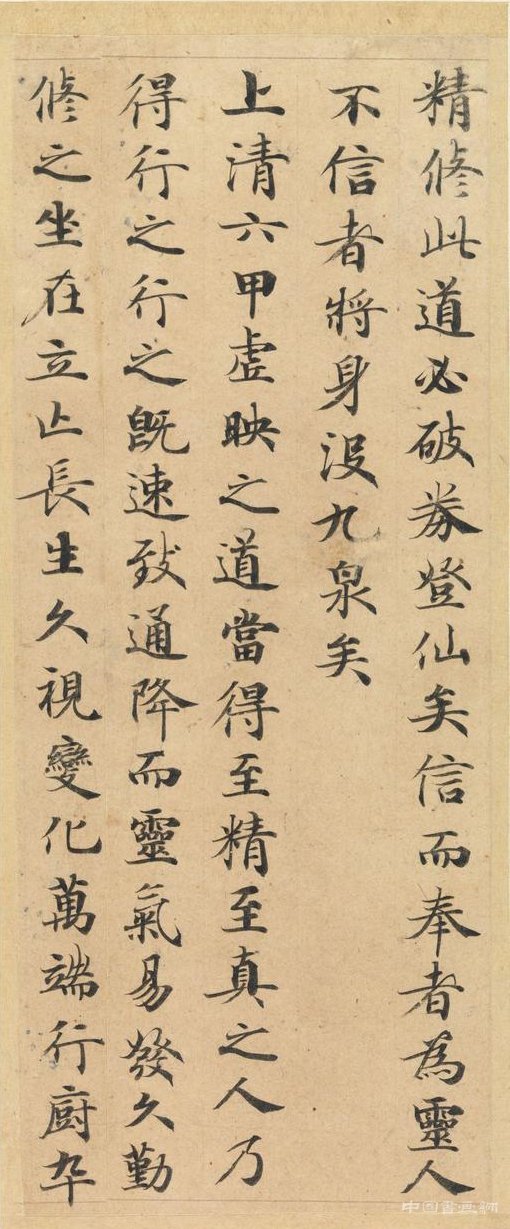 精脩此道必破券登仙矣信而奉者為靈人
不信者將身没九泉矣
上清六甲虛映之道當得至精至真之人乃
得行之行之既速致通降而靈氣易發久勤
脩之坐在立亡長生久視變化萬端行廚卒
中国书画网